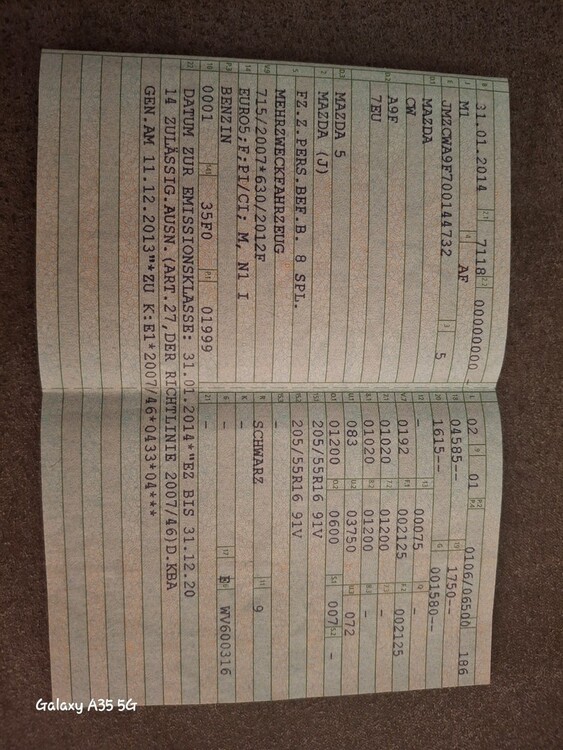 31.01.2014 7118 00000000 -
M1 AF
JMZCWA9F700144732 5
MAZDA
CW
A9F
7EU
MAZDA 5
MAZDA (J)
FZ.Z.PERS.BEF.B. 8 SPL.
MEHRZWECKFAHRZEUG
715/2007*630/2012F
EURO5;F;PI/CI; M, N1 I
BENZIN
0001 35F0 01999
DATUM ZUR EMISSIONSKLASSE: 31.01.2014*"EZ BIS 31.12.20
14 ZULÄSSIG.AUSN.(ART.27,DER RICHTLINIE 2007/46)D.KBA
GEN.AM 11.12.2013"*ZU K:E1*2007/46*0433*04***
02 01 0106/06500 186
04585-- 1750--
1615-- 001580--
- 00075 -
0192 002125 002125
01020 01200 -
01020 01200 -
083 03750 072
01200 0600 007 -
205/55R16 91V
205/55R16 91V
-
SCHWARZ 9
-
- E WV600316
-
Galaxy A35 5G